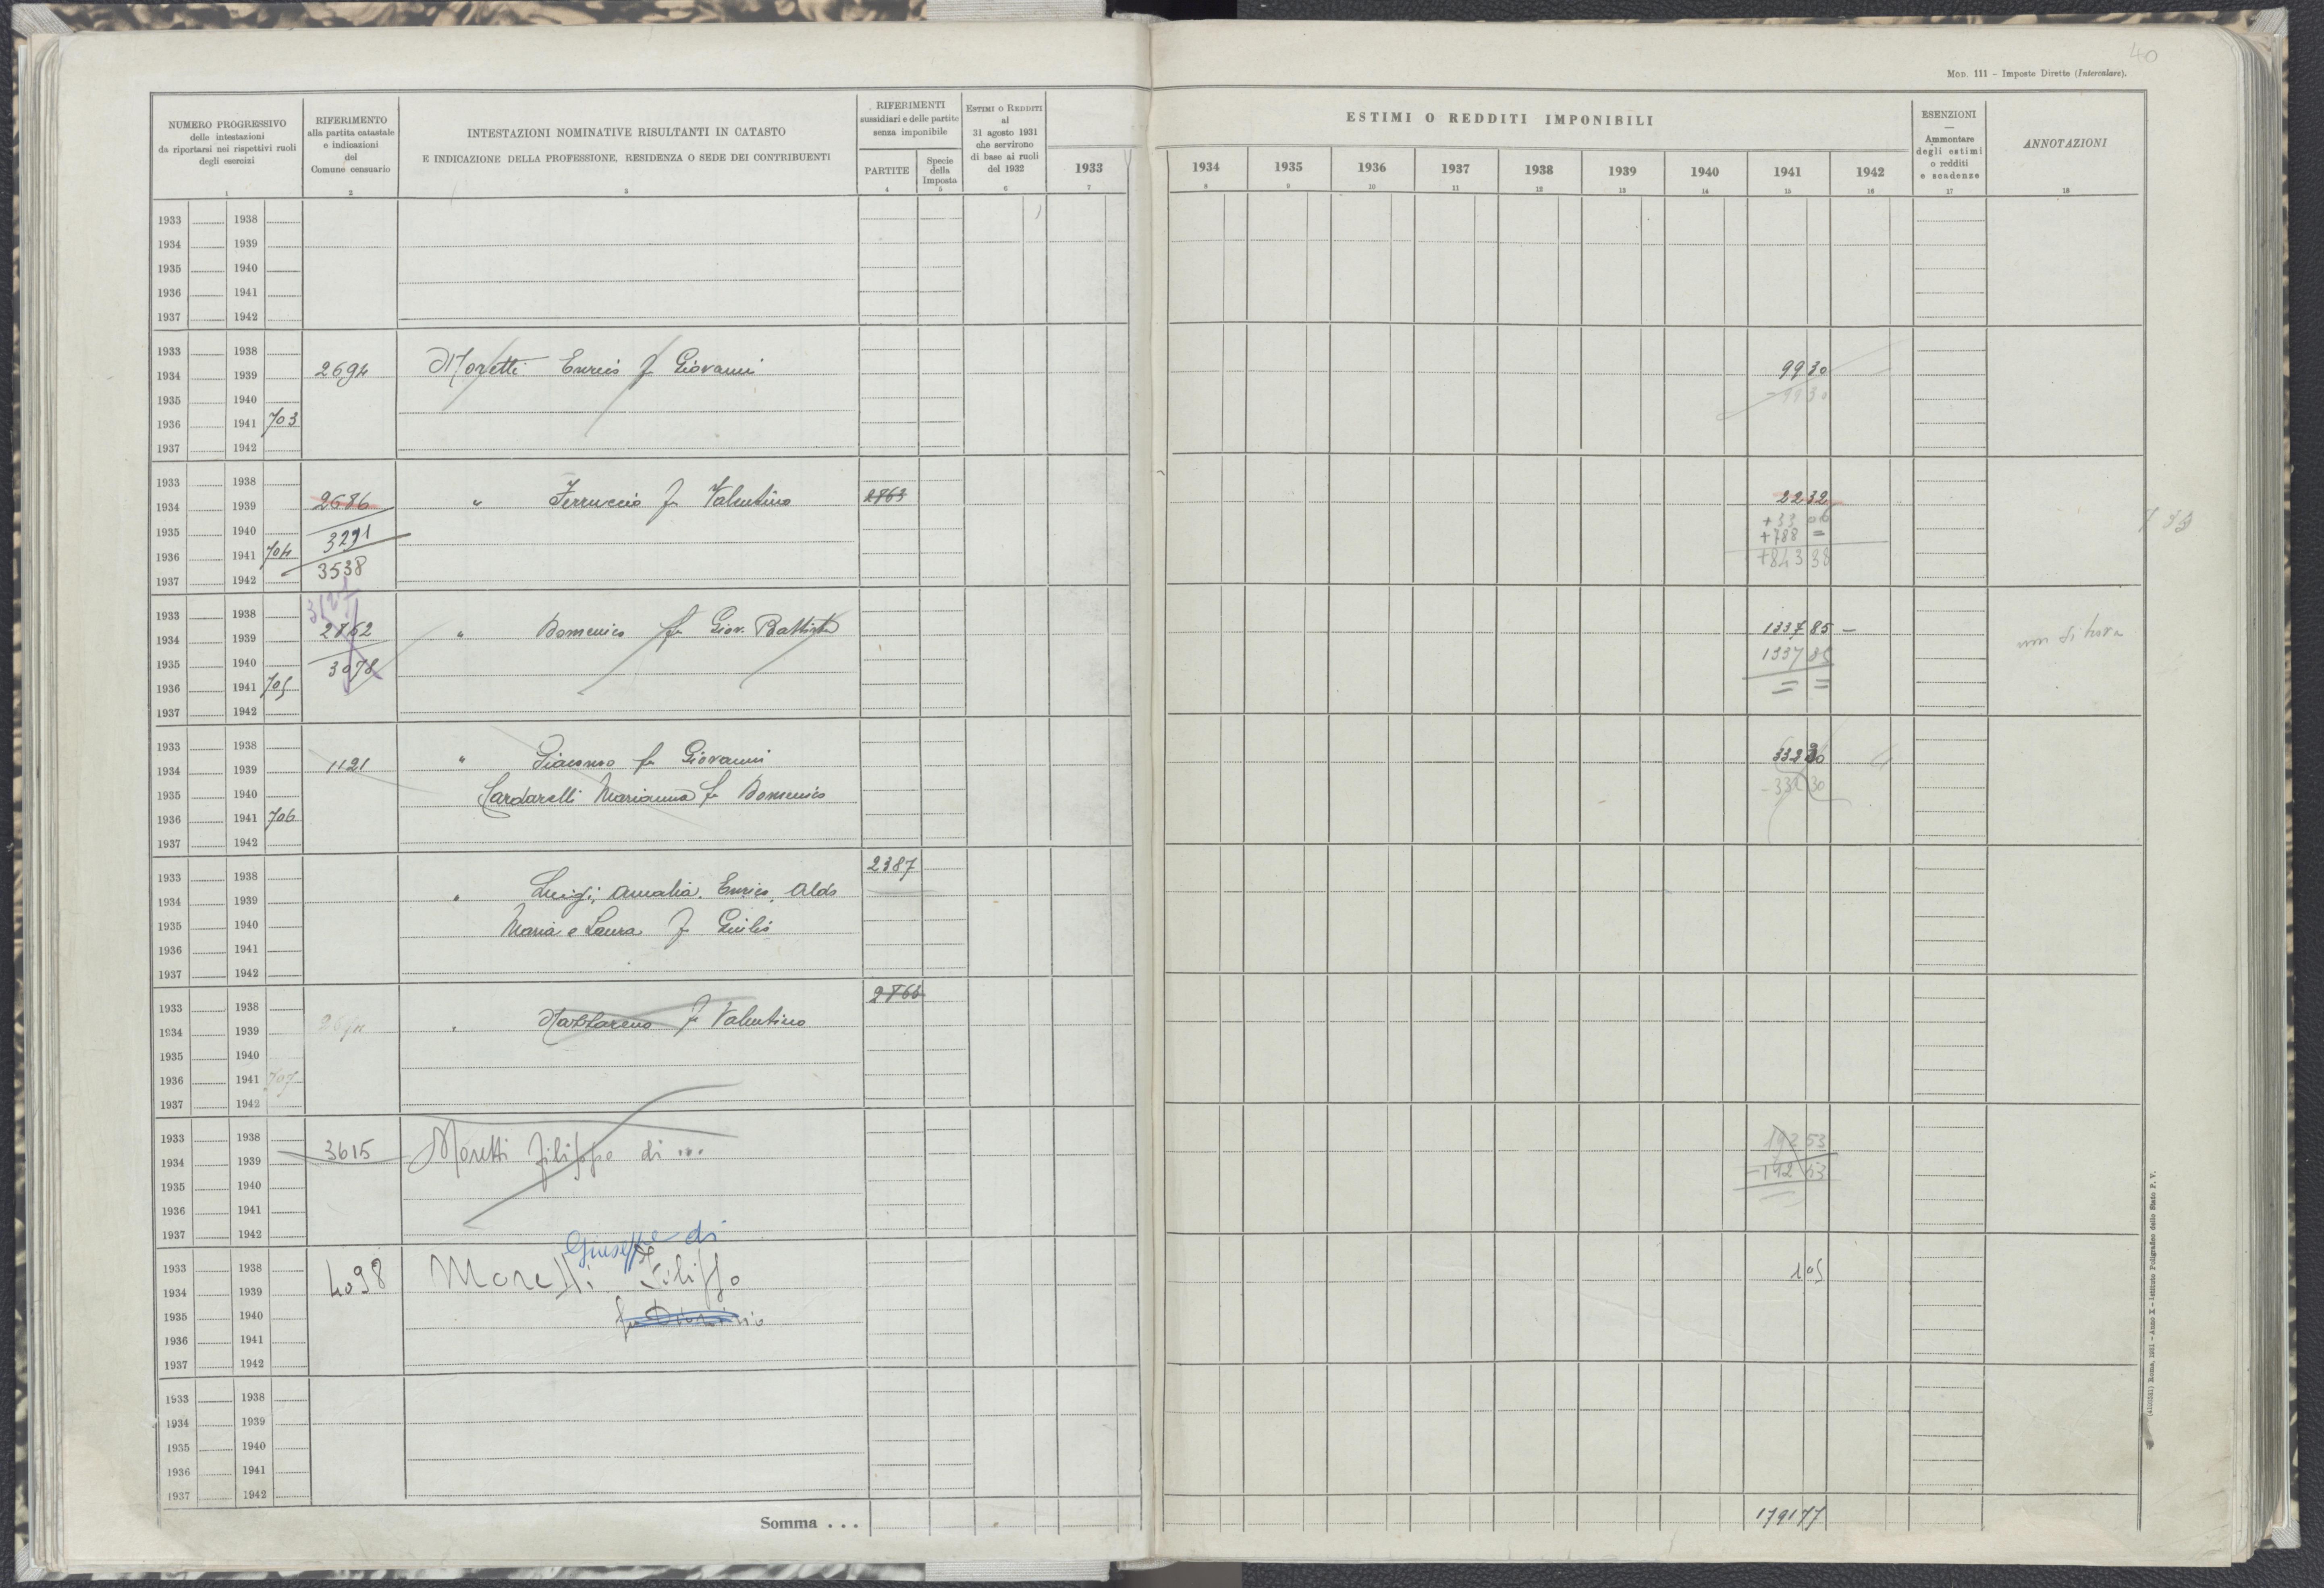 40
Mod. 111 - Imposte Dirette (Intercalare).
NUMERO PROGRESSIVO
delle intestazioni
da riportarsi nei rispettivi ruoli
degli esercizi
1
RIFERIMENTO
alla partita catastale
e indicazioni
del
Comune censuario
2
INTESTAZIONI NOMINATIVE RISULTANTI IN CATASTO
E INDICAZIONE DELLA PROFESSIONE, RESIDENZA O SEDE DEI CONTRIBUENTI
3
RIFERIMENTI
sussidiari e delle partite
senza imponibile
PARTITE
4
Specie
della
Imposta
5
Estimi o Redditi
al
31 agosto 1931
che servirono
di base ai ruoli
del 1932
6
ESTIMI O REDDITI IMPONIBILI
1933 1934 1935 1936 1937 1938 1939 1940 1941 1942
7 8 9 10 11 12 13 14 15 16
ESENZIONI
—
Ammontare
degli estimi
o redditi
e scadenze
17
ANNOTAZIONI
18
1933 1938
1934 1939
1935 1940
1936 1941
1937 1942
1933 1938
1934 1939 2694 Moretti Enrico fu Giovanni 99 30
1935 1940 - 99 30
1936 1941 703
1937 1942
1933 1938
1934 1939 2686 " Ferruccio fu Valentino 2863 22 32
1935 1940 3291 +33 06
+788 =
1936 1941 704 +843 38
1937 1942 3538
1933 1938
1934 1939 2762 " Domenico fu Giov. Battista 1337 85 - non si trova
1935 1940 3078 1337 85
1936 1941 705 = =
1937 1942
1933 1938
1934 1939 1121 " Giacomo fu Giovanni 332 30
1935 1940 Cardarelli Marianna fu Domenico - 332 30
1936 1941 706
1937 1942
1933 1938 2387
1934 1939 " Luigi, Amalia, Enrico, Aldo
1935 1940 Maria e Laura fu Giulio
1936 1941
1937 1942
1933 1938 2866
1934 1939 " Nazzareno fu Valentino
1935 1940
1936 1941 707
1937 1942
1933 1938
1934 1939 3615 Moretti Filippo di ... 192 53
1935 1940 - 192 53
1936 1941
1937 1942
Giuseppe di
1933 1938
1934 1939 4098 Moretti Filippo 1 05
1935 1940
1936 1941
1937 1942
1933 1938
1934 1939
1935 1940
1936 1941
1937 1942
Somma . . . 1791 77
(4100251) Roma, 1931 - Anno X - Istituto Poligrafico dello Stato P. V.